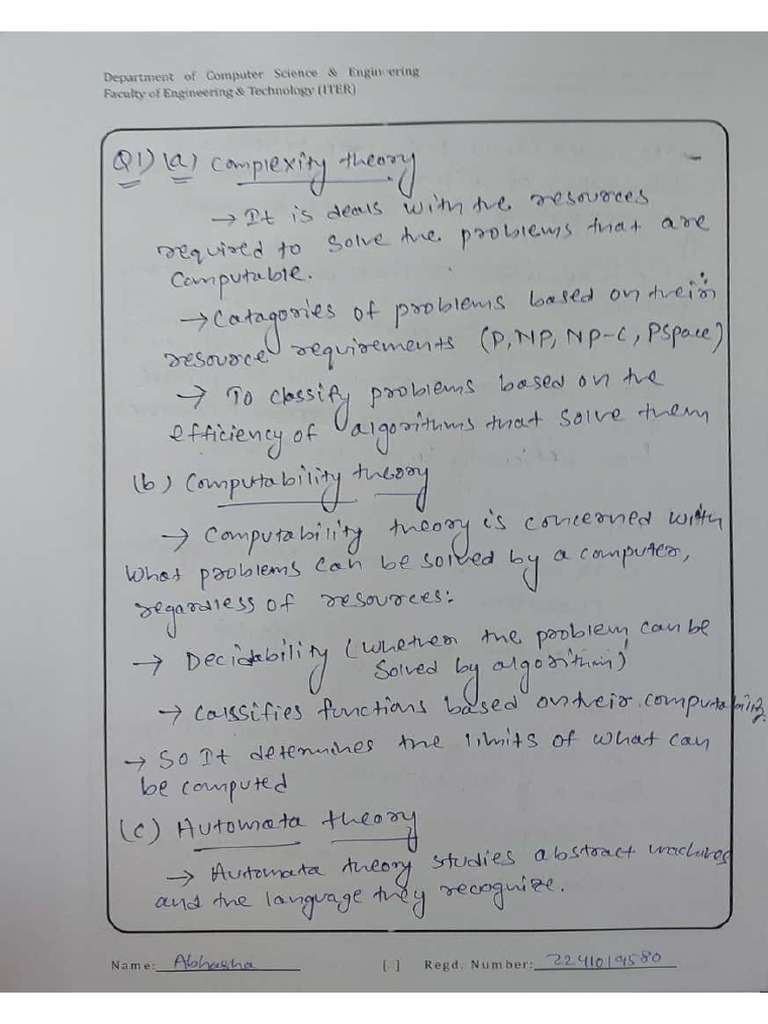 Department of Computer Science & Engineering
Faculty of Engineering & Technology (ITER)
Q1) (a) Complexity theory
→ It is deals with the resources
required to solve the problems that are
Computable.
→ Catagories of problems based on their
resource requirements (P, NP, NP-C, PSpace)
→ To classify problems based on the
efficiency of algorithms that solve them
(b) Computability theory
→ Computability theory is concerned with
what problems can be solved by a computer,
regardless of resources:
→ Decidability (whether the problem can be
solved by algorithm)
→ Calssifies functions based on their computability.
→ So It determines the limits of what can
be computed
(c) Automata theory
→ Automata theory studies abstract machines
and the language they recognize.
Name: Abhasha [ ] Regd. Number: 2241019580